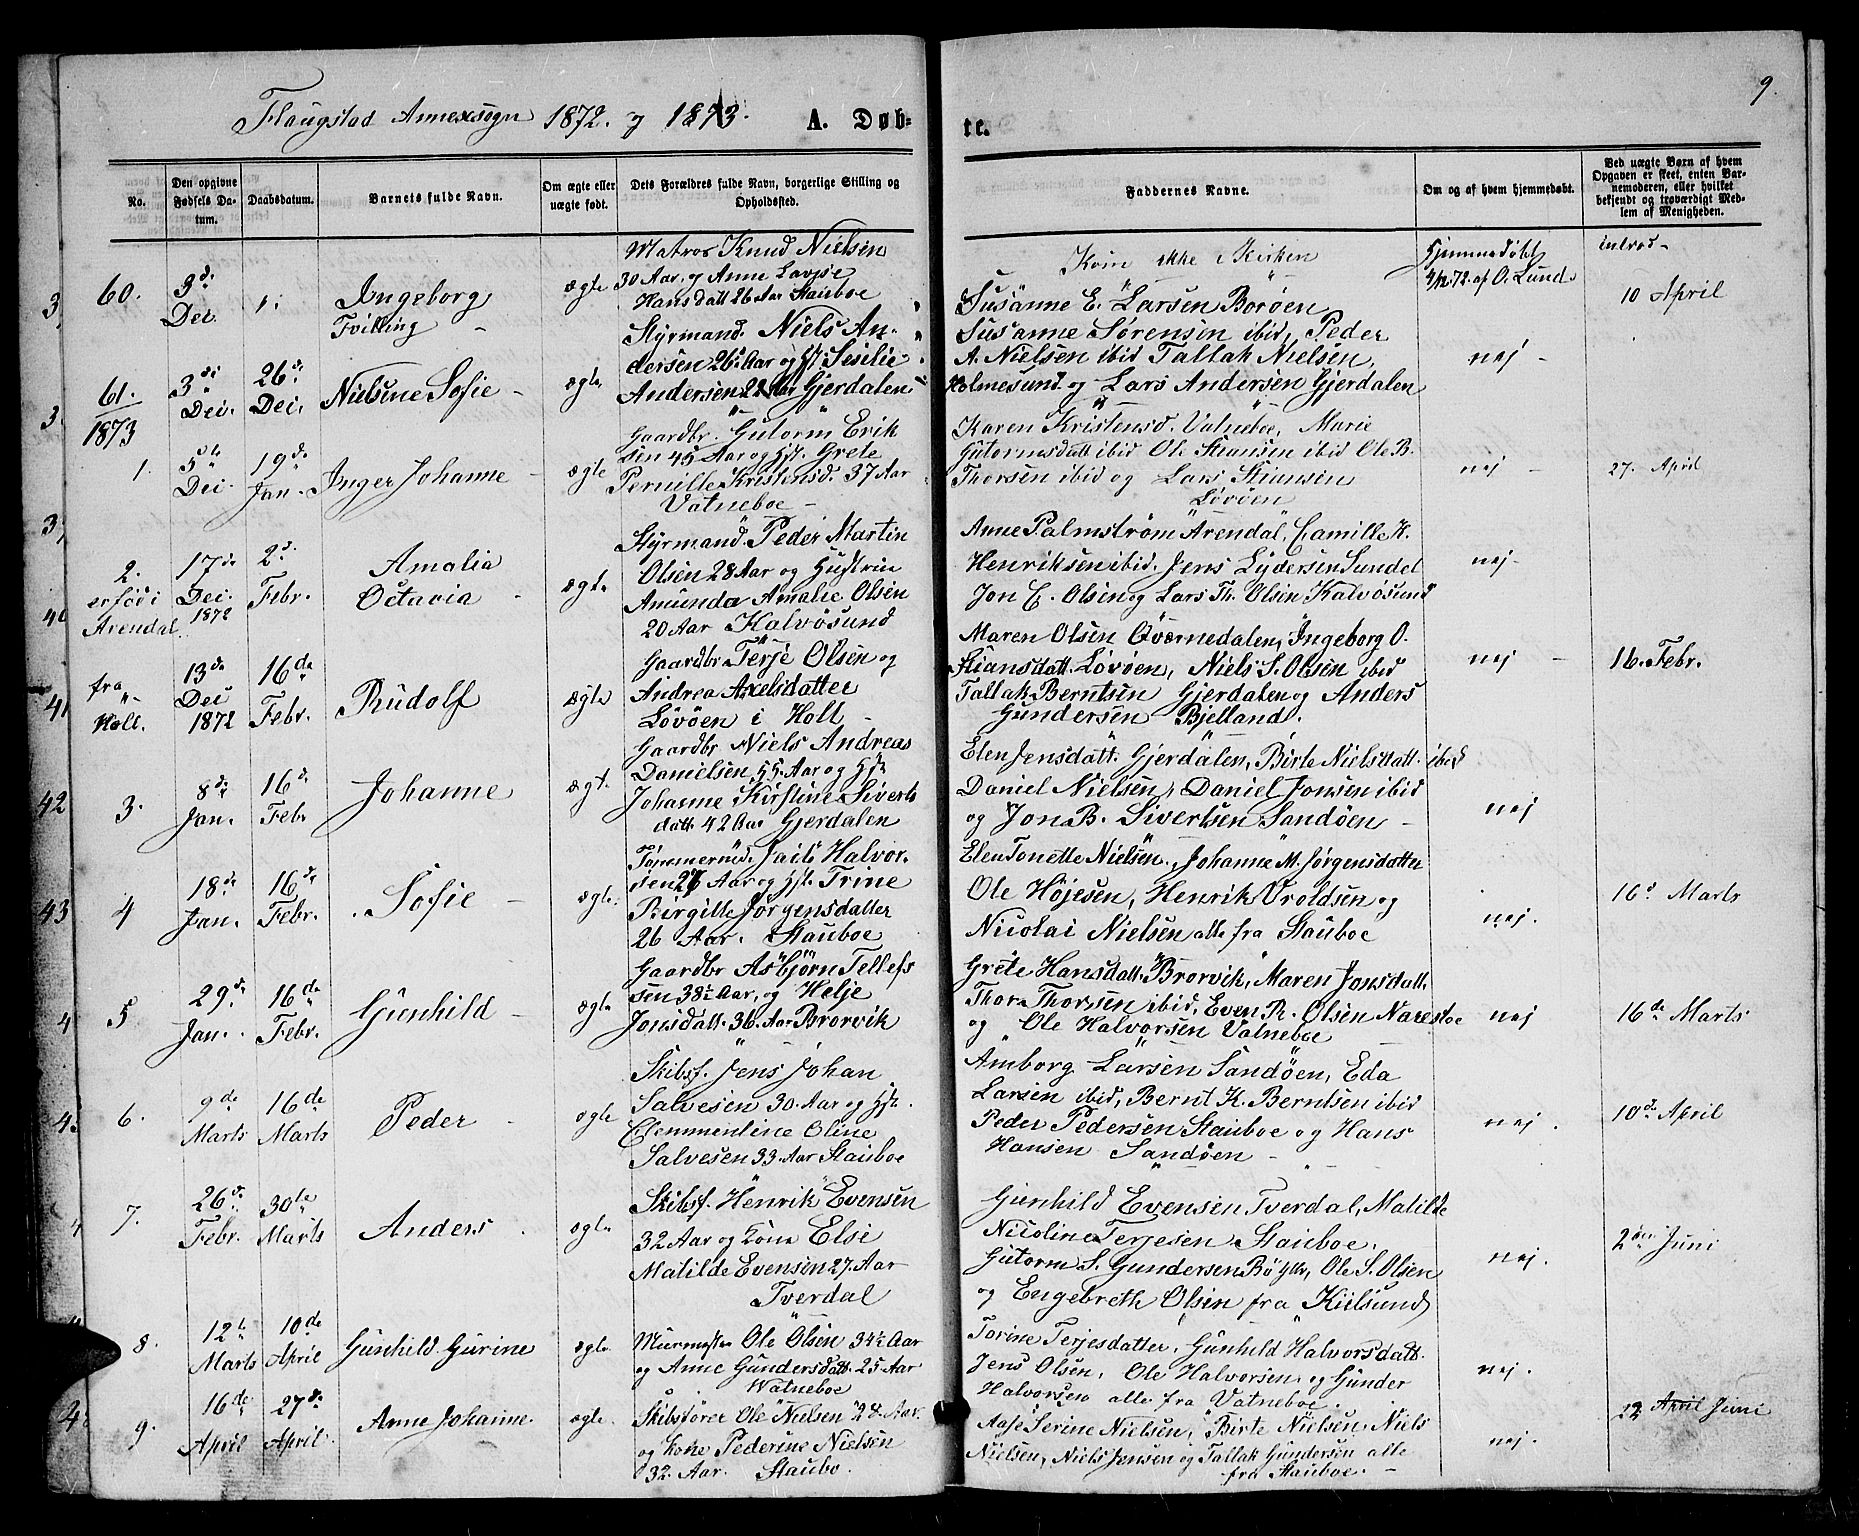 9.
Flaugstad Annexsogn 1872. og 1873. A. Døb- te.
No.
Den opgivne Fødsels Datum.
Daabsdatum.
Barnets fulde Navn.
Om ægte eller uægte født.
Dets Forældres fulde Navn, borgerlige Stilling og Opholdssted.
Faddernes Navne.
Om og af hvem hjemmedøbt.
Ved uægte Børn af hvem Opgaven er skeet, enten Barnemoderen, eller hvilket bekjendt og troværdigt Medlem af Menigheden.
60. 3de Dei. Ingeborg Tvilling ægte
Matros Knud Nielsen
30 Aar og Anne Lovise
Hansdatt 26 Aar Stauboe
Kom ikke i Kirken
Hjemmedøbt
4/12.72. af O. Lund
introd-
10 April
61. 3de Dei. 26de Dei. Nielsine Sofie ægte
Styrmand Niels An-
dersen 26 Aar og Hst. Sesilie
Andersen 22 Aar Gjerdalen
Susanne E. Larsen Borøen
Susanne Sørensen ibid, Peder
A. Nielsen ibid Tallak Nielsen,
Holmesund og Lars Andersen Gjerdalen
nej
1873
1. 5te Dei. 19de Jan. Inger Johanne ægte
Gaardbr. Gutorm Erik
sen 45 Aar og Hst. Grete
Pernille Kristensd. 37 Aar
Vatneboe
Karen Kristensd. Vatneboe, Marie
Gutormsdatt ibid Ole Stiansen ibid Ole B.
Thorsen ibid og Lars Stiansen
Løvøen
nej
27. April
2. er född i Arendal. 17de Dei. 1872 2d. Febr. Amalia Octavia ægte
Styrmand. Peder Martin
Olsen 28 Aar og Hustrue
Amunda Amalie Olsen
20 Aar Kalvøsund
Anne Palmstrøm Arendal, Camille K.
Henriksen ibid. Jens Lydersen Sundet
Jon C. Olsen og Lars Th. Olsen Kalvøsund
nej
fra Holt. 13de Dei 1872 16de Febr. Rudolf ægte
Gaardbr Terje Olsen og
Andrea Axelsdatter
Løvøen i Holt
Maren Olsen Qværnedalen, Ingeborg O.
Stiansdatt. Løvøen, Niels S. Olsen ibid
Tallak Berntsen Gjerdalen og Anders
Gundersen Bjelland.
nej
16. Febr.
3. 8de Jan. 16de Febr Johanne ægt.
Gaardbr Niels Andreas
Danielsen 55 Aar og Hst
Johanne Kirstine Siverts
datt 42 Aar Gjerdalen
Elen Jensdatt. Gjerdalen, Birte Nielsdatt. ibid
Daniel Nielsen, Daniel Jonsen ibid
og Jon B. Sivertsen Sandøen
nej
4 18de Jan. 16de Febr. Sofie ægte.
Halvor.
sen 27 Aar og Hst. Trine
Birgitte Jørgensdatter
26 Aar. Stauboe
Elen Tonette Nielsen, Johanne M. Jørgensdatter
Ole Højesen, Henrik Vroldsen og
Nicolai Nielsen alle fra Stauboe
nej.
16d Marts
5 29de Jan. 16de Febr. Gunhild ægte
Gaardbr Asbjørn Tellefs
sen 38 Aar, og Helje
Jonsdatt. 36 Aar Brorvik
Grete Hansdatt. Brorvik, Maren Jonsdatt.
Thor Thorsen ibid, Even R. Olsen Narestoe
og Ole Halvorsen Vatneboe
nej
16de Marts
6. 9de Marts 16de Marts Peder ægte
Skibsf. Jens Johan
Salvesen 30 Aar og Hst.
Clemmentine Oline
Salvesen 33 Aar Stauboe
Amborg Larsen Sandøen, Eda
Larsen ibid, Bernt K. Berntsen ibid
Peder Pedersen Stauboe og Hans
Hansen Sandøen
nej.
10de April
7. 26de Febr. 30te Marts Anders ægte
Skibsf. Henrik Evensen
32 Aar og Kone Else
Matilde Evensen 27 Aar
Tverdal
Gunhild Evensen Tverdal, Matilde
Nicoline Terjesen Stauboe,
Gutorm S. Gundersen Ole S. Olsen
og Engebreth Olsen fra Kielsund
nej.
2den Juni
8. 12te Marts 10de April Gunhild Gurine ægte
Murmester Ole Olsen 34 Aar
og Anne Gundersdatt. 25 Aar
Watneboe
Torine Terjesdatter, Gunhild Halvorsdatt.
Jens Olsen, Ole Halvorsen, og Gunder
Halvorsen alle fra Vatneboe.
nej.
9. 16de April 27de April Anne Johanne. ægte.
Skibsfører Ole Nielsen 28 Aar.
og Kone Pederine Nielsen
32 Aar. Staubo.
Aase Serine Nielsen, Birte Nielsen, Niels
Nielsen, Niels Jensen og Tallak Gundersen alle
fra Stauboe.
nej.
22 April Juni